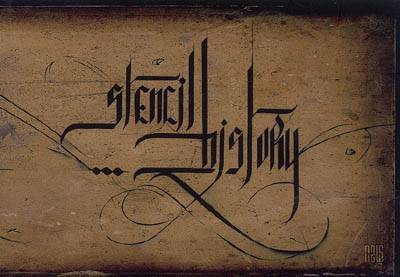 stencil
... history